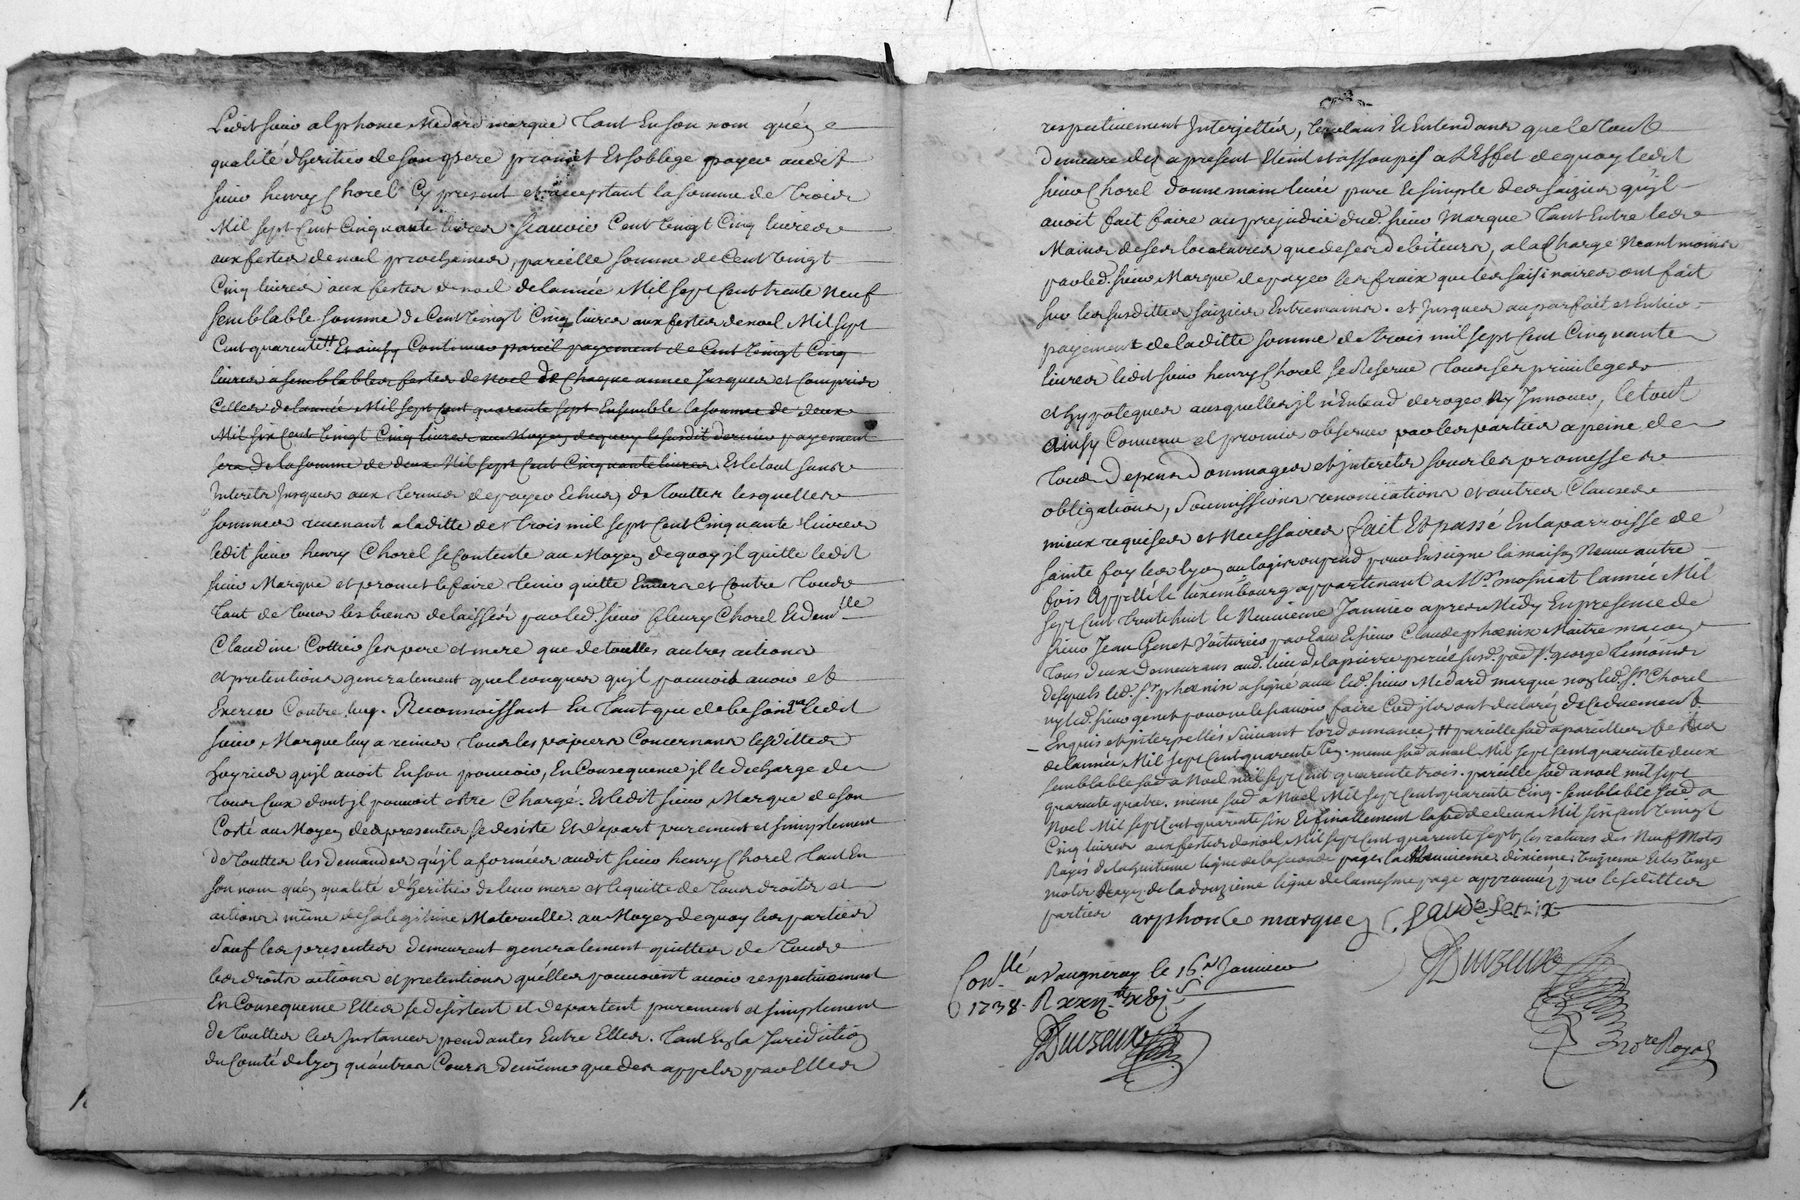 Ledit sieur alphonce Medard marque Tant En son nom qu'en
qualité d'heritier de son frere promet Et soblege payer audit
sieur henry Chorel Cy present et acceptant la somme de Trois
Mil sept Cent Cinquante livres scauoir Cent Vingt Cinq livres
aux festes de noel prochaines, pareille somme de Cent Vingt
Cinq livres aux festes de noel de lannée Mil sept Cent trente Neuf
semblable somme de Cent Vingt Cinq livres aux festes de noel Mil sept
Cent quarente Et ainsy Continuer pareil payement de Cent Vingt Cinq
livres a semblables festes de noel de Chaque année Jusques et Compris
Celles de lannée Mil sept Cent quarente sept Ensemble la somme de deux
Mil six Cent Vingt Cinq livres au Moyen de quoy le susdit dernier payement
sera de la somme de deux Mil sept Cent Cinquante livres Et le tout sans
Interets Jusques aux Termes de payer Echus, de Touttes lesquelles
sommes reuenant a laditte de Trois mil sept Cent Cinquante livres
ledit sieur henry Chorel se Contente au Moyen de quoy il quitte ledit
sieur Marque et promet le faire Tenir quitte Enuers et Contre Tous
Tant de Tous les biens delaissés par led. sieur fleury Chorel Et dem.lle
Claudine Cottier ses pere et mere que de touttes autres actions
et pretentions generalement quelconques qu'jl pouuoit auoir et
Exercer Contre luy. Reconnoissant En Tant que de besoin que ledit
sieur Marque luy a remis Tous les papiers Concernans lesdittes
hoyries qu'jl auoit En son pouuoir, En Consequence jl le decharge de
Tous Ceux dont jl pouuoit estre Chargé. Et ledit sieur Marque de son
Costé au Moyen des presentes se desiste Et depart purement et simplement
de Touttes les demandes qu'jl a formées audit sieur henry Chorel Tant En
son nom qu'en qualité d'heritier de leur mere et le quitte de Tous droits et
actions même de sa legitime Maternelle. au Moyen de quoy les parties
sauf les presentes demeurent generalement quittes de Tous
les droits actions et pretentions qu'elles pouuoient auoir respectiuement
En Consequence Elles se desistent et departent purement et simplement
de Touttes les Instances pendantes Entre Elles. Tant En la Juridiction
du Comté de lyon qu'autres Cours de même que des appels par Elles
respectiuement Interjettés, Voulans Et Entendans que le Tout
demeure des a present Eteint et assoupis a l'Effet de quoy ledit
sieur Chorel donne main leuée pure Et simple des saizies qu'jl
auoit fait faire au prejudice dud. sieur Marque Tant Entre les
Mains de ses locataires que de ses debiteurs, a la Charge Neantmoins
par led. sieur Marque de payer les fraix que les saisinaires ont fait
sur les susdittes saizies Entremains. et Jusques au parfait et Entier
payement de laditte somme de trois mil sept Cent Cinquante
livres ledit sieur henry Chorel se Reserue Tous ses priuileges
et hypoteques ausquelles jl n'Entend deroger Ny Innouer, le tout
ainsy Conuenu et promis obseruer par les parties a peine de
Tous depens dommages et interets sous les promesses
obligations, soumissions renonciations et autres Clauses
mieux requises et Necessaires fait Et passé En la parroisse de
sainte foy les lyon au logis ou pend pour Enseigne la maison Neuue autre
fois appellé le luxembourg appartenant a Mr. mosniat lannée Mil
sept Cent trente huit le Neuuieme Januier apres Midy En presence de
sieur Jean Genet Voiturier par Eau Et sieur Claude phœnix Maitre maçon
Tous deux demeurans aud. lieu de la pierre percée susd. par. st. george Temoins
desquels led. sr. phœnix a signé auec led. sieur Medard marque non led. sr. Chorel
ny led. sieur genet pour ne le scauoir faire Comme jls ont declaré de Ce duement
Enquis et jnterpellés suiuant lordonnance, # pareille sad a pareilles festes
de lannée Mil sept Cent quarente Un. meme sad a noel Mil sept Cent quarente deux
semblable sad a Noel mil sept Cent quarente trois. pareille sad a noel mil sept
quarente quatre. meme sad a Noel Mil sept Cent quarente Cinq. semblable sad a
Noel Mil sept Cent quarente six Et finallement la sad de deux Mil six Cent Vingt
Cinq livres aux festes de noel Mil sept Cent quarente sept, les ratures des Neuf Mots
Rayés de la huitieme ligne de la seconde page, la Neuuieme, dixieme, Onzieme Et les Onze
mots Rayés de la douzieme ligne de la mesme page approuuées par lesdittes
parties arphonce marque Claude fenix
Duizeux
nore Royal
Conllé a Vaugneray le 16e. Januier
1738. R xxij
Duizeux